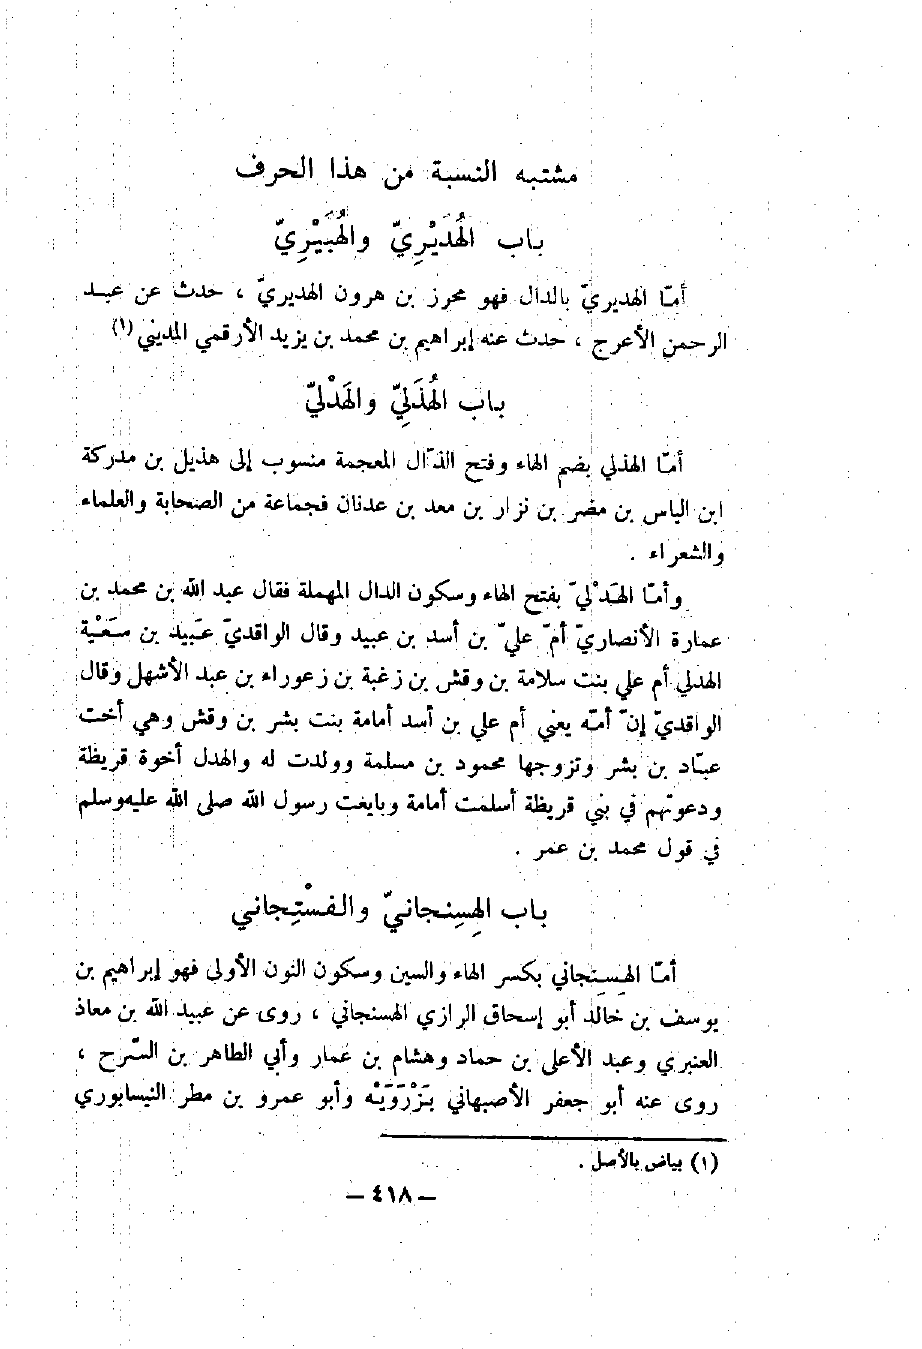 مشتبه النسبة من هذا الحرف
باب الهُدَيْرِيّ والهُبَيْرِيّ
أمّا الهديريّ بالدال فهو محرز بن هرون الهديريّ ، حدث عن عبد
الرحمن الأعرج ، حدث عنه إبراهيم بن محمد بن يزيد الأرقمي المديني (١)
باب الهُذَلِيّ والهَدْليّ
أمّا الهذلي بضم الهاء وفتح الذال المعجمة منسوب إلى هذيل بن مدركة
ابن الياس بن مضر بن نزار بن معد بن عدنان فجماعة من الصحابة والعلماء
والشعراء .
وأمّا الهَدْليّ بفتح الهاء وسكون الدال المهملة فقال عبد الله بن محمد بن
عمارة الأنصاريّ أمّ عليّ بن أسد بن عبيد وقال الواقديّ عَبيد بن سَعْية
الهدلي أم علي بنت سلامة بن وقش بن زغبة بن زعوراء بن عبد الأشهل وقال
الواقديّ إنّ أمّه يعني أم علي بن أسد أمامة بنت بشر بن وقش وهي أخت
عبّاد بن بشر وتزوجها محمود بن مسلمة وولدت له والهدل أخوة قريظة
ودعوتهم في بني قريظة أسلمت أمامة وبايعت رسول الله صلى الله عليه وسلم
في قول محمد بن عمر .
باب الهِسِنجانيّ والفسْتِجاني
أمّا الهِسِنجاني بكسر الهاء والسين وسكون النون الأولى فهو إبراهيم بن
يوسف بن خالد أبو إسحاق الرازي الهسنجاني ، روى عن عبيد الله بن معاذ
العنبري وعبد الأعلى بن حماد وهشام بن عمار وأبي الطاهر بن السّرح ،
روى عنه أبو جعفر الأصبهاني بَزْرَوَيْه وأبو عمرو بن مطر النيسابوري
(١) بياض بالأصل .
— ٤١٨ —